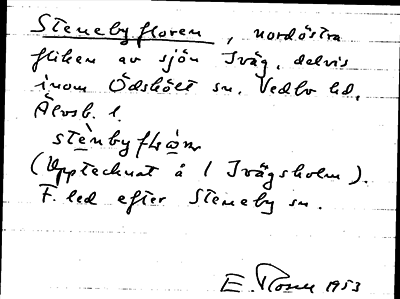 Stenebyfloren, nordöstra
fliken av sjön Iväg, delvis
inom Ödskölt sn. Vedbo hd,
Älvsb. l.
stènbyflωm
(Upptecknat å 1 Ivägsholm).
F. led efter Steneby sn.
E. Rosell 1953